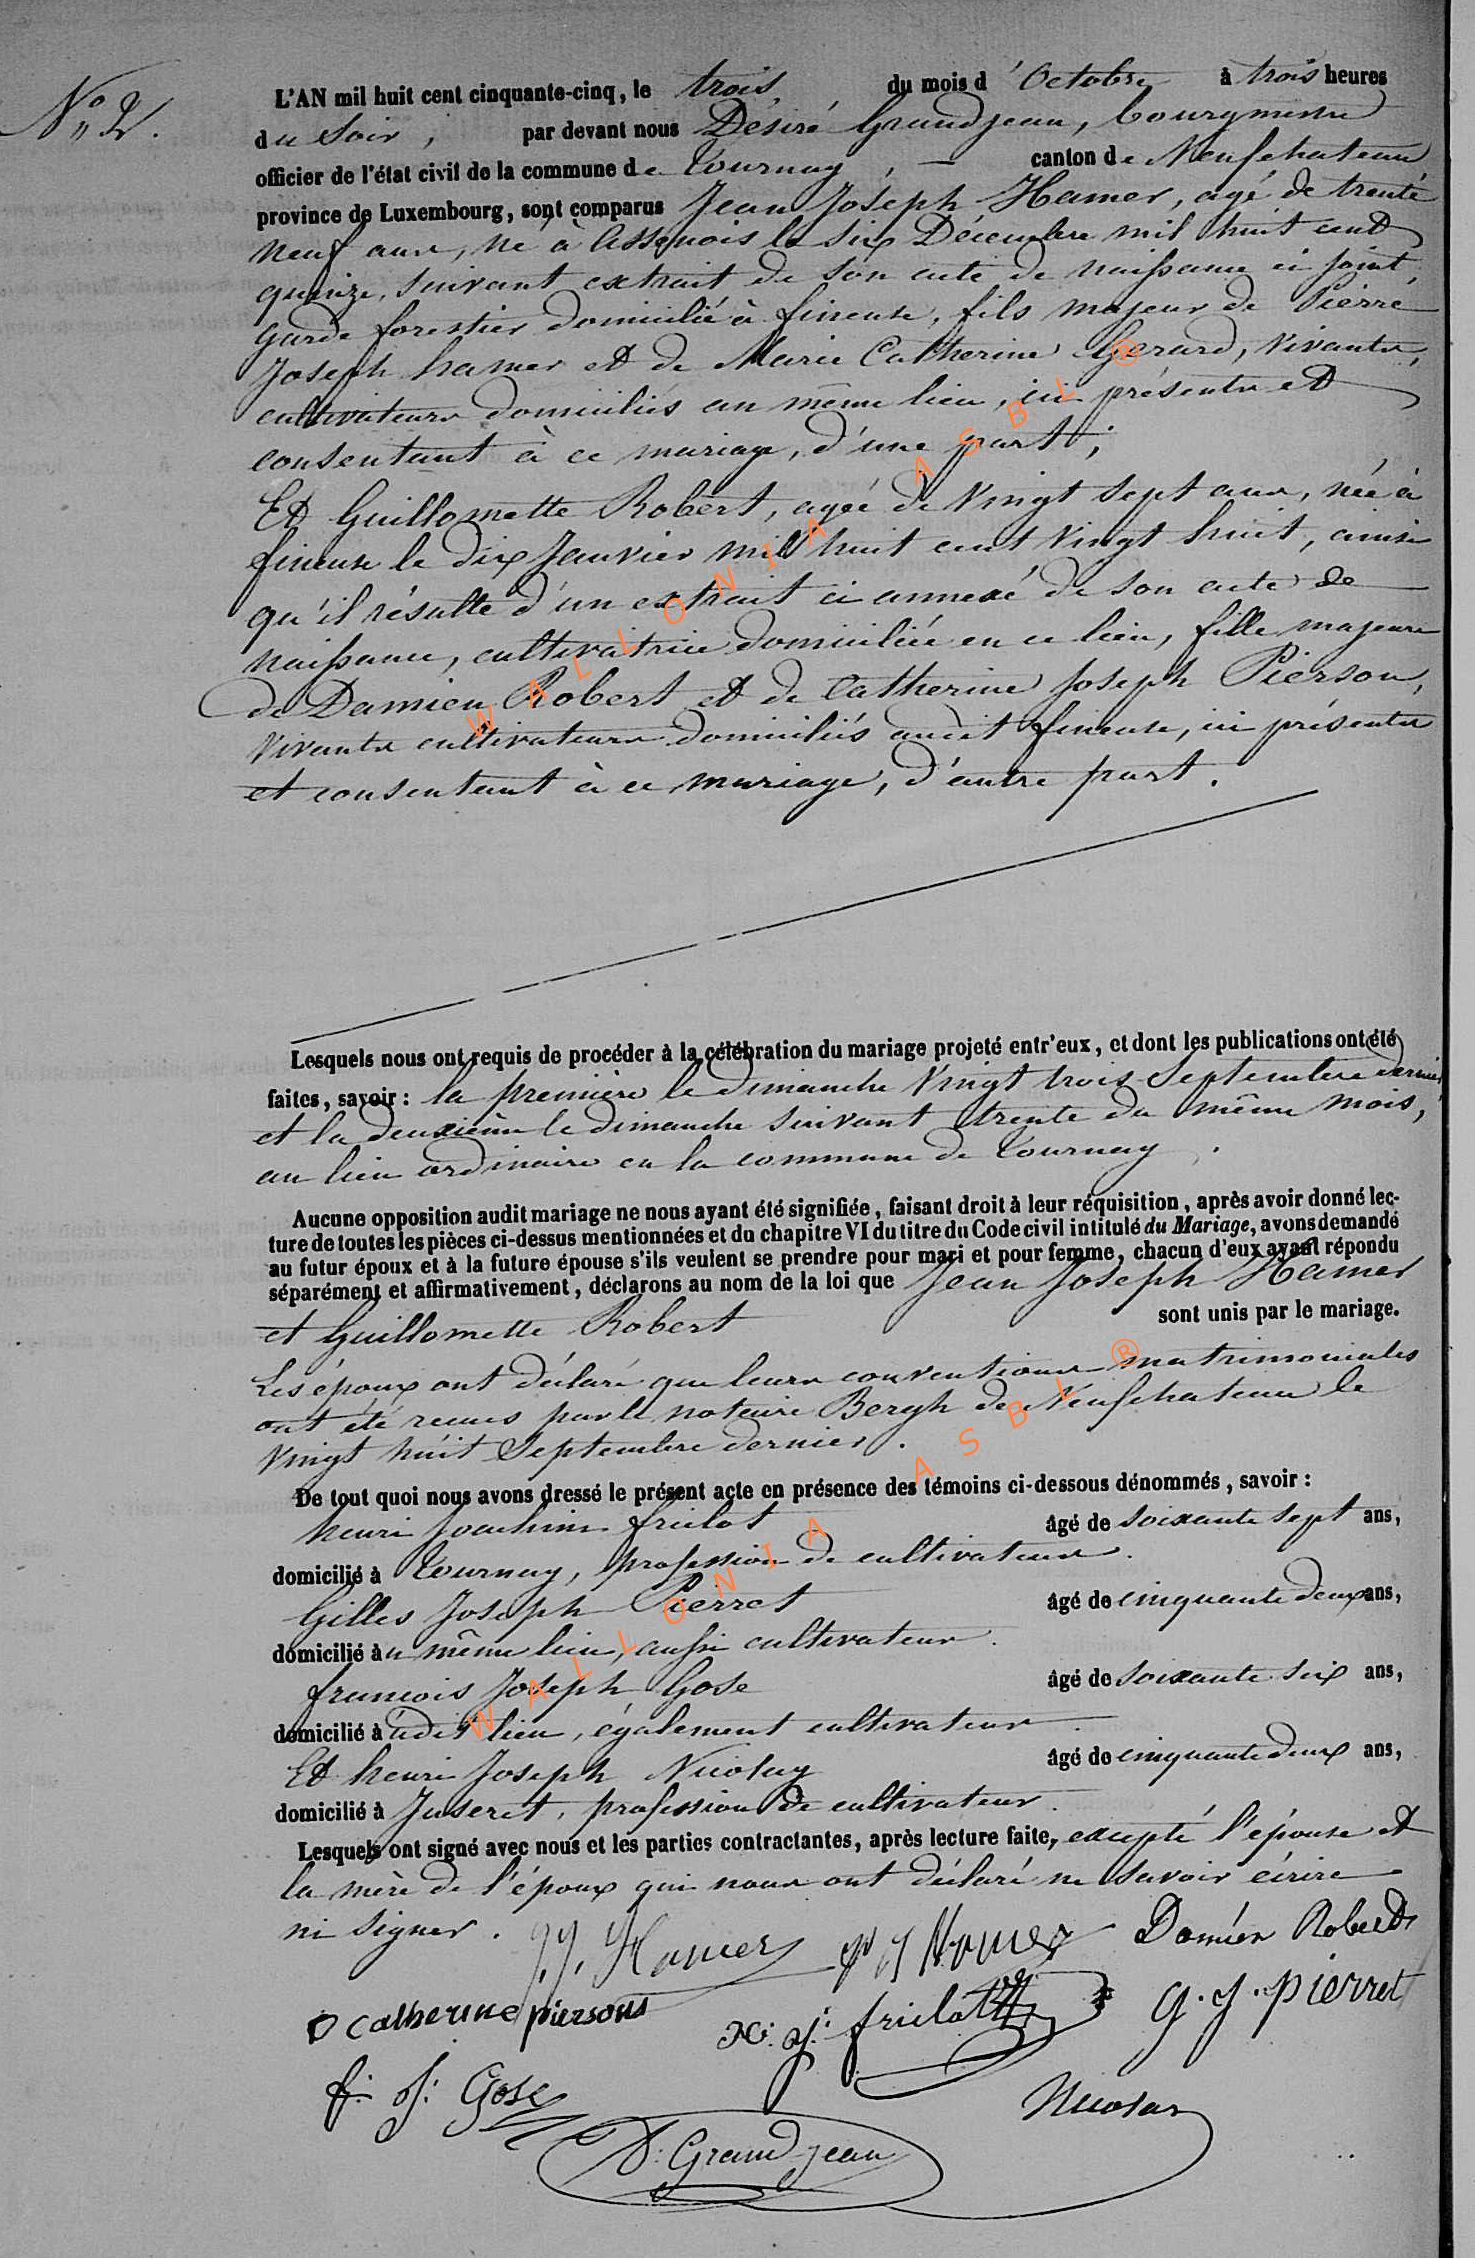 N° 2.
L'AN mil huit cent cinquante-cinq, le trois du mois d'Octobre à trois heures
du Soir, par devant nous Désiré Grandjean, bourgmestre
officier de l'état civil de la commune de Tournay, canton de Neufchateau
province de Luxembourg, sont comparus Jean Joseph Hamer, agé de trente
neuf ans, né à Assenois le six Décembre mil huit cent
quinze, suivant extrait de son acte de naissance ci joint,
garde forestier domicilié à fineuse, fils majeur de Pierre
Joseph hamer et de Marie Catherine Gerard, vivants,
cultivateurs domiciliés au même lieu, ici présents et
consentant à ce mariage, d'une part;
Et Guillomette Robert, agée de vingt sept ans, née à
fineuse le dix Janvier mil huit cent vingt huit, ainsi
qu'il résulte d'un extrait ci annexé de son acte de
naissance, cultivatrice domiciliée en ce lieu, fille majeure
de Damien Robert et de Catherine Joseph Pierson,
vivants cultivateurs domiciliés audit fineuse, ici présents
et consentant à ce mariage, d'autre part.
Lesquels nous ont requis de procéder à la célébration du mariage projeté entr'eux, et dont les publications ont été
faites, savoir : la première le dimanche vingt trois Septembre dernier
et la deuxième le dimanche suivant trente du même mois,
au lieu ordinaire en la commune de Tournay.
Aucune opposition audit mariage ne nous ayant été signifiée, faisant droit à leur réquisition, après avoir donné lec-
ture de toutes les pièces ci-dessus mentionnées et du chapitre VI du titre du Code civil intitulé du Mariage, avons demandé
au futur époux et à la future épouse s'ils veulent se prendre pour mari et pour femme, chacun d'eux ayant répondu
séparément et affirmativement, déclarons au nom de la loi que Jean Joseph Hamer
et Guillomette Robert sont unis par le mariage.
Les époux ont déclaré que leurs conventions matrimoniales
ont été reçues par le notaire Bergh de Neufchateau le
vingt huit Septembre dernier.
De tout quoi nous avons dressé le présent acte en présence des témoins ci-dessous dénommés, savoir :
henri Joachim frielot âgé de soixante sept ans,
domicilié à Tournay, profession de cultivateur.
Gilles Joseph Pierret âgé de cinquante deux ans,
domicilié au même lieu, aussi cultivateur.
francois Joseph Gose âgé de soixante six ans,
domicilié àudit lieu, également cultivateur.
Et henri Joseph Nicolay âgé de cinquante deux ans,
domicilié à Juseret, profession de cultivateur.
Lesquels ont signé avec nous et les parties contractantes, après lecture faite, excepté l'épouse et
la mère de l'époux qui nous ont déclaré ne savoir écrire
ni signer. J.J. Hamer P J Hamer Damien Robert
Catherine piersons h. j. frielot G. J. pierret
f. J. Gose Nicolay
D. Grandjean
WALLONIA ASBL ®
WALLONIA ASBL ®